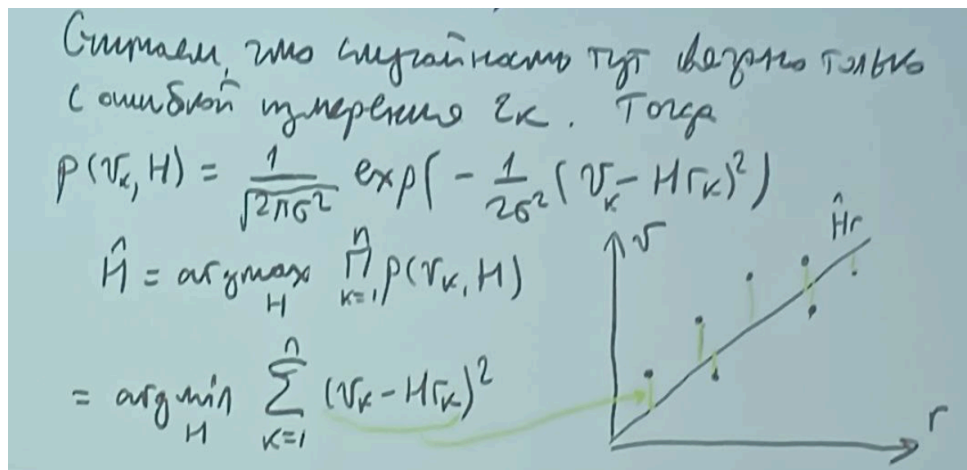 Считаем, что случайность тут связана только
с ошибкой измерения εк. Тогда
p(v_k, H) = 1/√(2πσ²) exp(- 1/(2σ²) (v_k - H r_k)²)
Ĥ = argmax_H ∏_{k=1}^{n} p(v_k, H)
= argmin_H ∑_{k=1}^{n} (v_k - H r_k)²
v
Ĥr
r